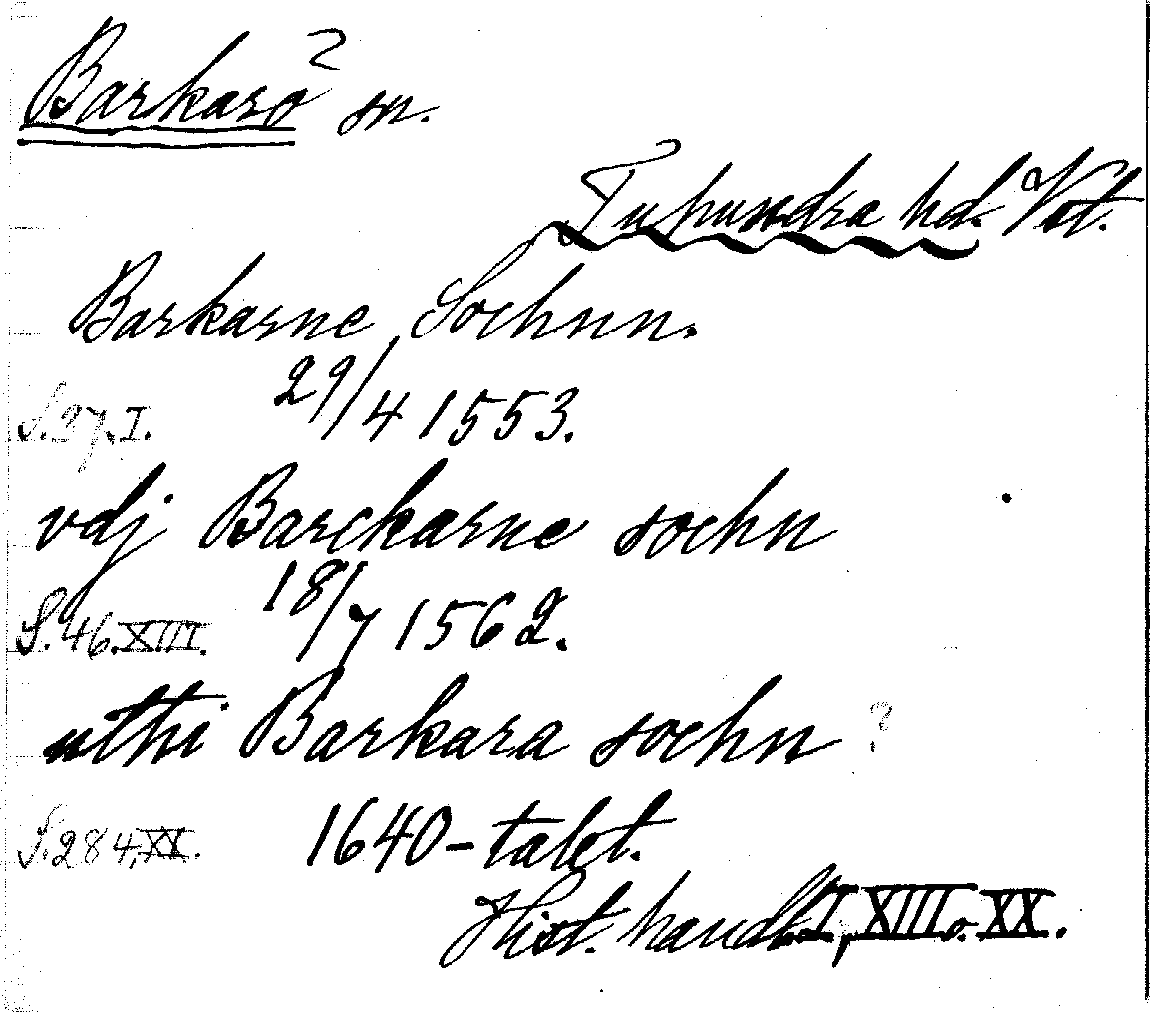 Barkarö ? sn.
Tuhundra hd. Vst.
Barkarne Sochnn.
S. 37. I. 29/4 1553.
vdj Barckarne sochn
S. 46. XIII. 18/7 1562.
uthi Barkara sochn ?
S. 284, XX. 1640-talet.
Hist. handl. I, XIII o. XX.